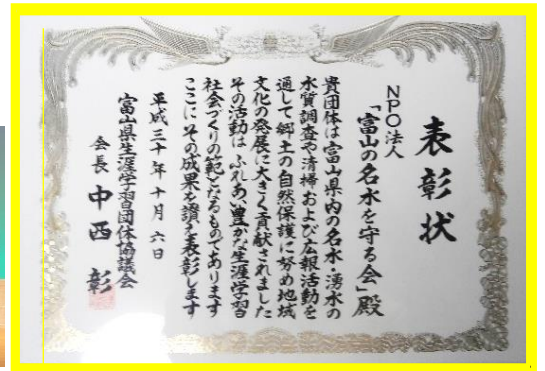 表彰状
NPO法人
「富山の名水を守る会」殿
貴団体は富山県内の名水・湧水の
水質調査や清掃および広報活動を
通して郷土の自然保護に努め地域
文化の発展に大きく貢献されました
その活動は ふれあい豊かな生涯学習
社会づくりの範となるものであります
ここに その成果を讃え表彰します
平成三十年十月六日
富山県生涯学習団体協議会
会長 中西 彰